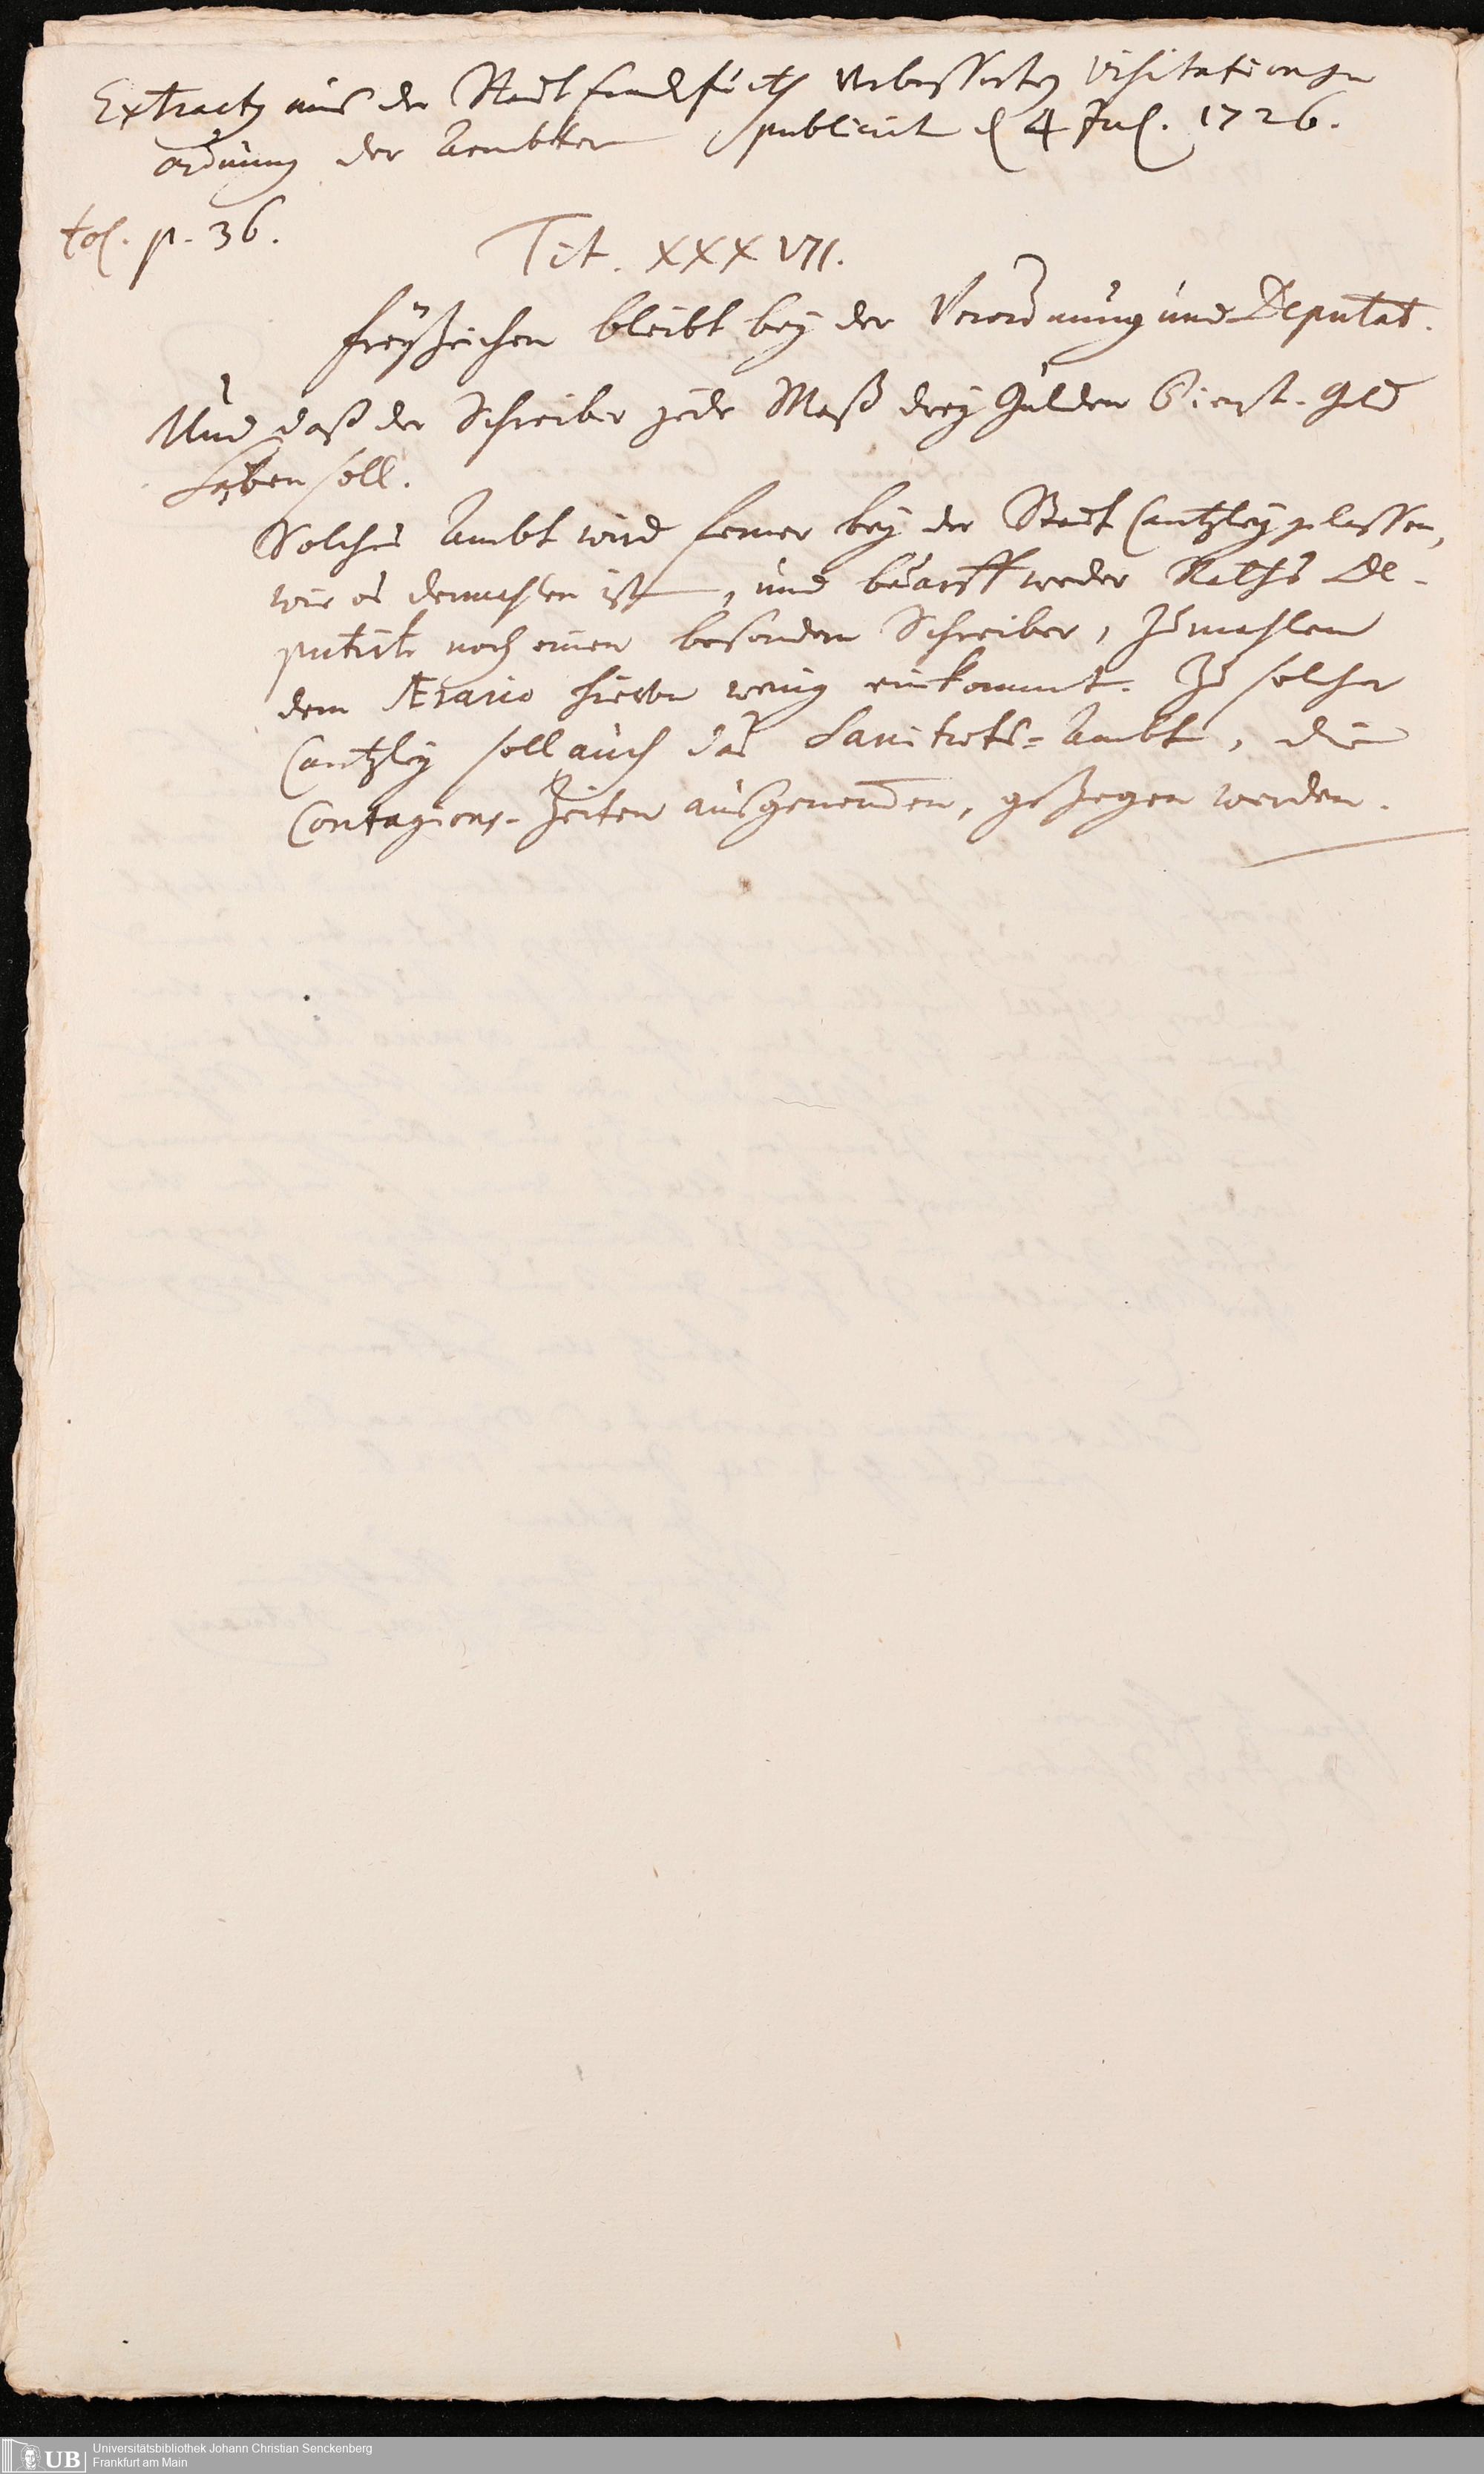 Extract aus der Statt Franckfurth Verbesserten Visitations-
ordnung der Aembter publicirt d 4 Jul. 1726.
fol. p. 36.
Tit. XXXVII.
Freyzeichen bleibt bey der Verordnung und Deputat.
Und daß der Schreiber jede Meß drey Gulden Dienst-Geld
haben soll.
Solches Ambt wird ferner bey der Statt Cantzley gelassen,
wie es dermahlen ist, und bedarff weder Raths De-
putirte noch einen besondern Schreiber, zumahlen
dem Ærario hievon wenig einkommt. Zu solcher
Cantzley soll auch das Sanitets-Ambt, die
Contagions-Zeiten ausgenommen, gezogen werden.
UB
Universitätsbibliothek Johann Christian Senckenberg
Frankfurt am Main